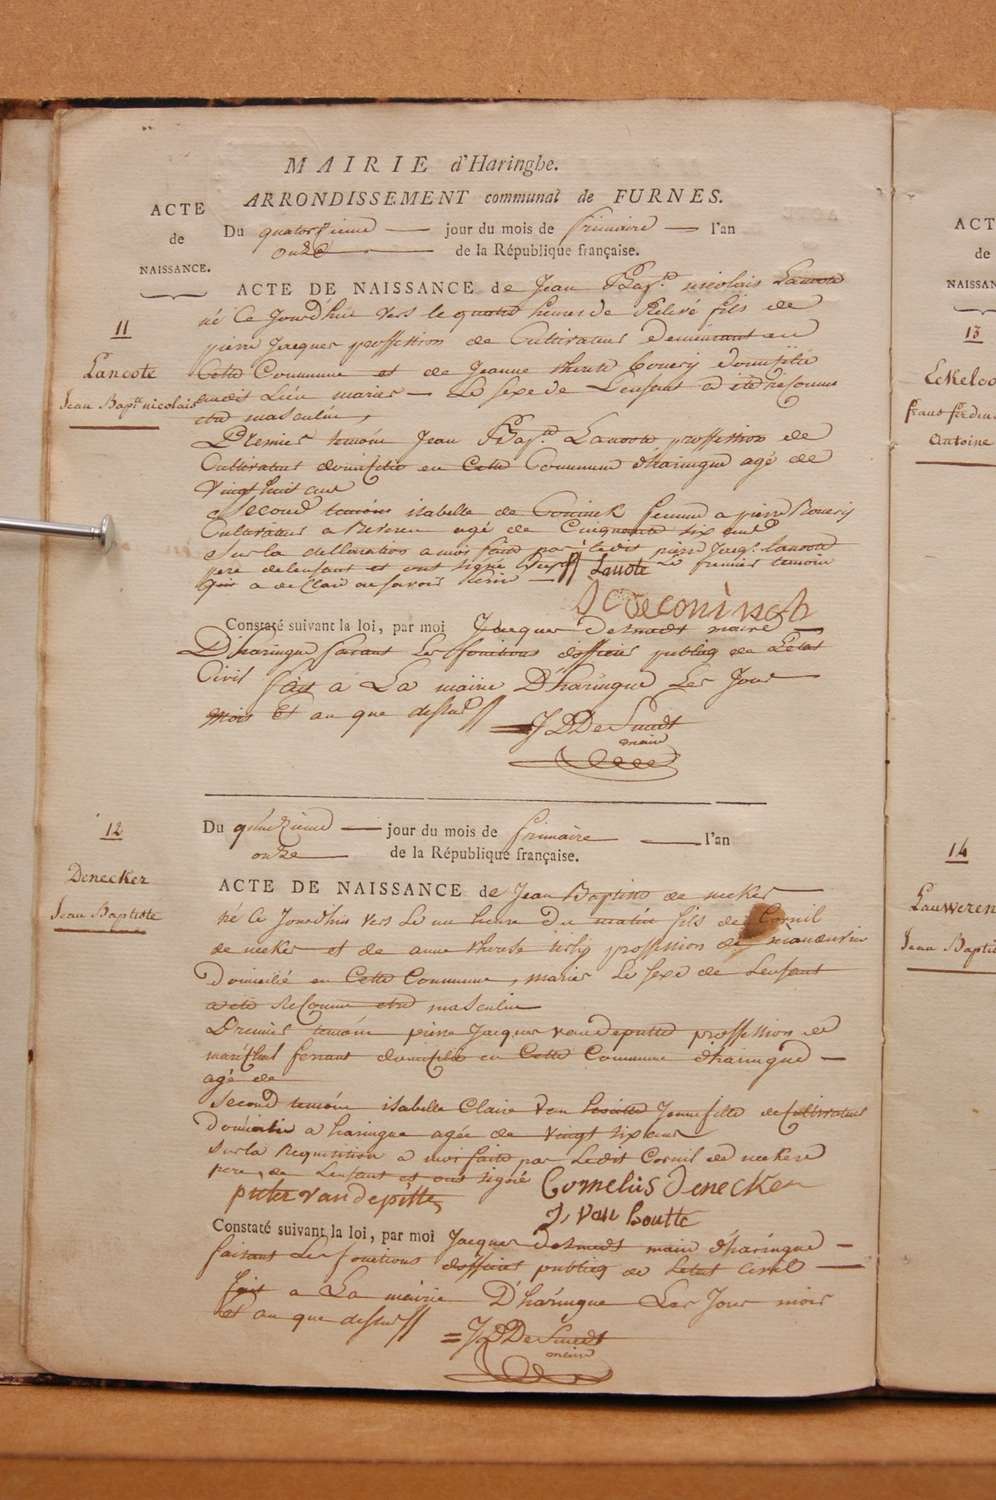 MAIRIE d'Haringhe.
ARRONDISSEMENT communal de FURNES.
ACTE
de
NAISSANCE.
Du quatorzieme jour du mois de frimaire l'an
onze de la République française.
11
Lanoote
Jean Bapt. nicolais
ACTE DE NAISSANCE de Jean Bapt. nicolais Lanoote
né Ce Jourd'huis vers le quatre heures de Relevé fils de
pierre Jacques proffession de Cultivateur demeurant en
Cette Commune et de Jeanne therese Couery domicilié
audit Lieu mariés Le Sexe de Lenfant a été reConnu
etre masculin,
Premier temoin Jean Bapt. Lanoote proffession de
Cultivateur domicilié en Cette Commune d'haringue agé de
Vingt huit ans
Second temoins isabelle de Coninck femme a pierre Couery
Cultivateur a agé de Cinquante six ans
Sur la dellaration a moi faite par ledit pierre Jacq. Lanoote
pere delenfant et ont signé Le premier temoin
a declaré ne savoir
Lanote
deconinck
Constaté suivant la loi, par moi Jacques Desmedt maire
D'haringue faisant Les fonctions dofficier publiq de L'état
Civil fait a La mairie D'haringue Les Jour
mois Et an que dessus
J D DeSmedt
maire
12
Denecker
Jean Baptiste
Du quinzieme jour du mois de frimaire l'an
onze de la République française.
ACTE DE NAISSANCE de Jean Baptiste de necker
né Ce Jourd'huis vers Le un heure Du matin fils de Cornil
de necker et de anne therese proffession de manouvrier
Domicilié en Cette Commune, mariés Le Sexe de Lenfant
a eté ReConnu etre masculin
Premier temoin pierre Jacques vandeputte proffession de
maréchal ferrant domicilié en Cette Commune d'haringue
agé de
Second temoin isabelle Claire Van houtte Jeune fille de Cultivateur
Domicilié a haringue agée de vingt six ans
Sur la Requisition a moi faite par Ledit Cornil de neckere
pere de Lenfant et ont signé
Cornelius Denecker
pieter vandepitte
J, van houtte
Constaté suivant la loi, par moi Jacques desmedt maire d'haringue
faisant Les fonctions dofficier publiq de Letat Civil
fait a La mairie D'haringue Les Jour mois
Et an que dessus
J D DeSmedt
maire
ACT
de
NAISSAN
13
Eckeloo
Antoine
14
Lauweren
Jean Baptis